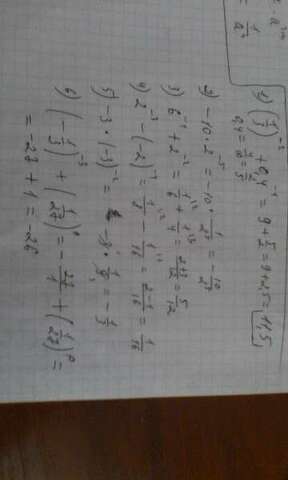 a²ⁿ
= 1/aⁿ
1) (1/3)⁻² + 0,4⁻¹ = 9 + 5/2 = 9 + 2,5 = 11,5
0,4 = 4/10 = 2/5
2) −10 · 2⁻⁵ = −10 · 1/2⁵ = −10/2⁵
3) 6⁻¹ + 2⁻² = 1/6 + 1/4 = 2+3/12 = 5/12
4) 2⁻³ − (−2)⁻⁴ = 1/8 − 1/16 = 2−1/16 = 1/16
5) −3 · (−3)⁻² = −3 · 1/9 = −1/3
6) (−1/3)⁻³ + (1/27)⁰ = −27/1 + (1/27)⁰ =
= −27 + 1 = −26